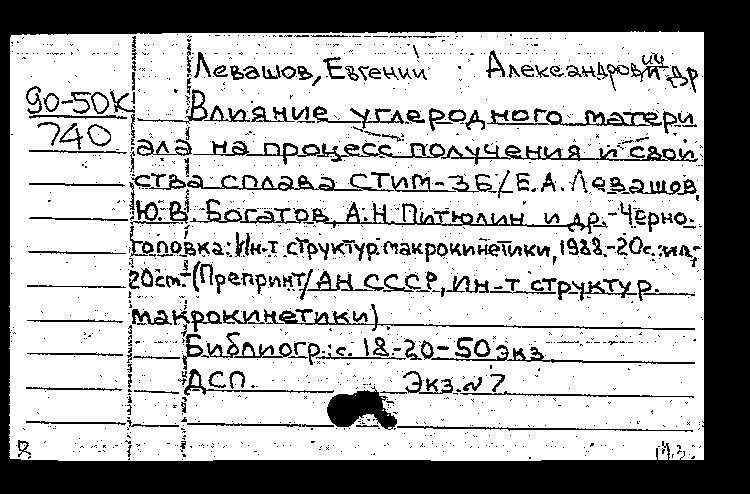 Левашов, Евгений Александрович и др
90-50К
740
Влияние углеродного матери
ала на процесс получения и свой
ства сплава СТИМ-3Б/Е.А.Левашов,
Ю.В. Богатов, А.Н. Питюлин и др.-Черно-
головка: Ин-т структур. макрокинетики, 1988.-20с.:ил;
20cm.-(Препринт/АН СССР, Ин-т структур.
макрокинетики)
Библиогр.: с. 18-20-50 экз.
ДСП. Экз.№7